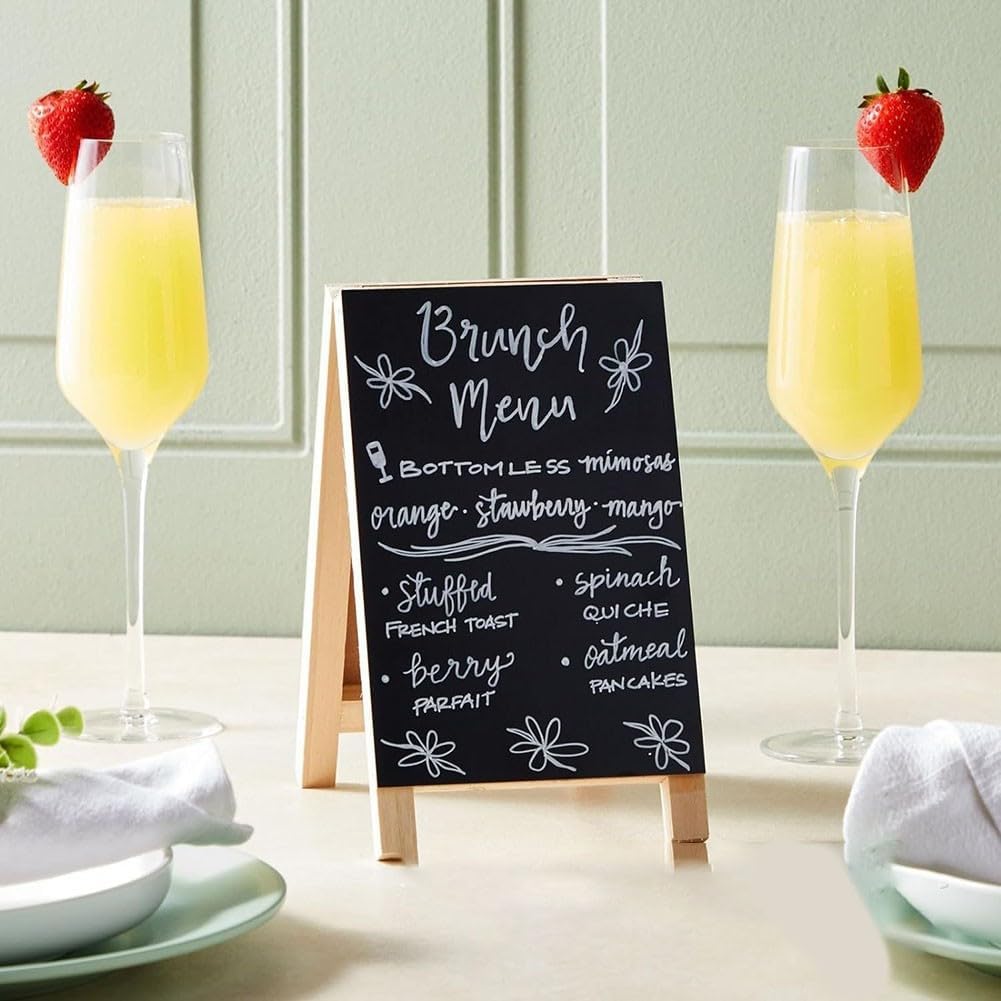 Brunch
Menu
BOTTOMLESS mimosas
orange · stawberry · mango
• stuffed
FRENCH TOAST
• spinach
QUICHE
• berry
PARFAIT
• oatmeal
PANCAKES